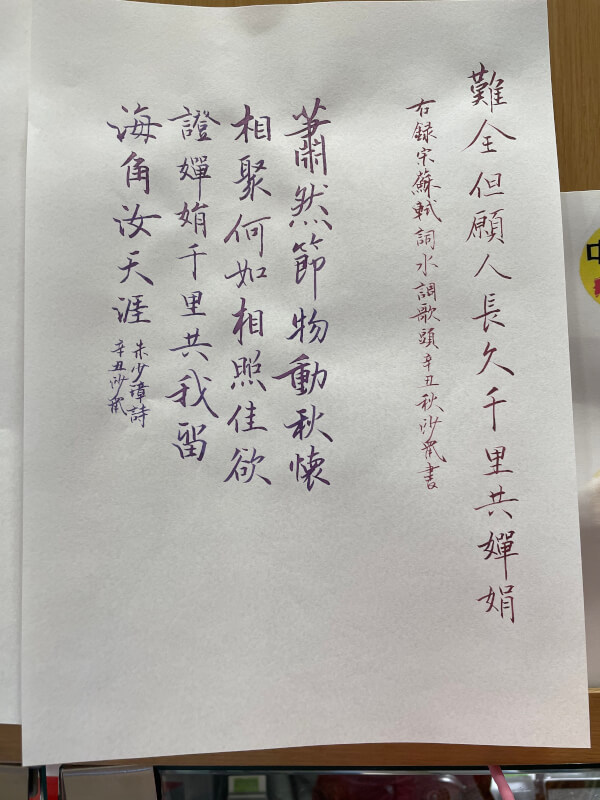 難全但願人長久千里共嬋娟
右録宋蘇軾詞水調歌頭辛丑秋沙書
蕭然節物動秋懷
相聚何如相照佳欲
證嬋娟千里共我留
海角汝天涯
朱少璋詩
辛丑沙
中